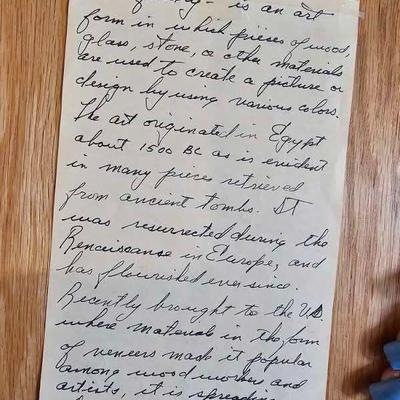 - is an art
form in which pieces of wood,
glass, stone, or other materials
are used to create a picture or
design by using various colors.
The art originated in Egypt
about 1500 BC as is evident
in many pieces retrieved
from ancient tombs. It
was resurrected during the
Renaiscanse in Europe, and
has flourished ever since.
Recently brought to the U.S.
where materials in the form
of veneers made it popular
among wood workers and
artists, it is spreading